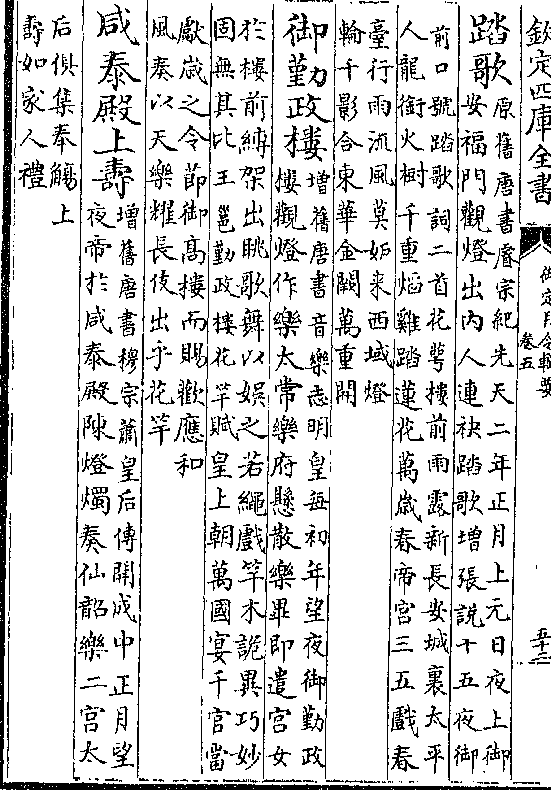 欽定四庫全書
御定月令輯要
卷五
五十三
踏歌原舊唐書睿宗紀先天二年正月上元日夜上御
安福門觀燈出内人連袂踏歌增張說十五夜御
前口號踏歌詞二首花萼樓前雨露新長安城裏太平
人龍銜火樹千重焰雞踏蓮花萬歲春帝宫三五戲春
臺行雨流風莫妬来西域燈
輪千影合東華金闕萬重開
御勤政樓增舊唐書音樂志明皇每初年望夜御勤政
樓觀燈作樂太常樂府懸散樂畢即遣宫女
於樓前縛架出眺歌舞以娱之若繩戲竿木詭異巧妙
固無其比王邕勤政樓花竿賦皇上朝萬國宴千官當
獻歲之令節御髙樓而賜歡應和
風奏以天樂耀長伎出乎花竿
咸泰殿上壽增舊唐書穆宗蕭皇后傳開成中正月望
夜帝於咸泰殿陳燈燭奏仙韶樂二宫太
后俱集奉觴上
壽如家人禮